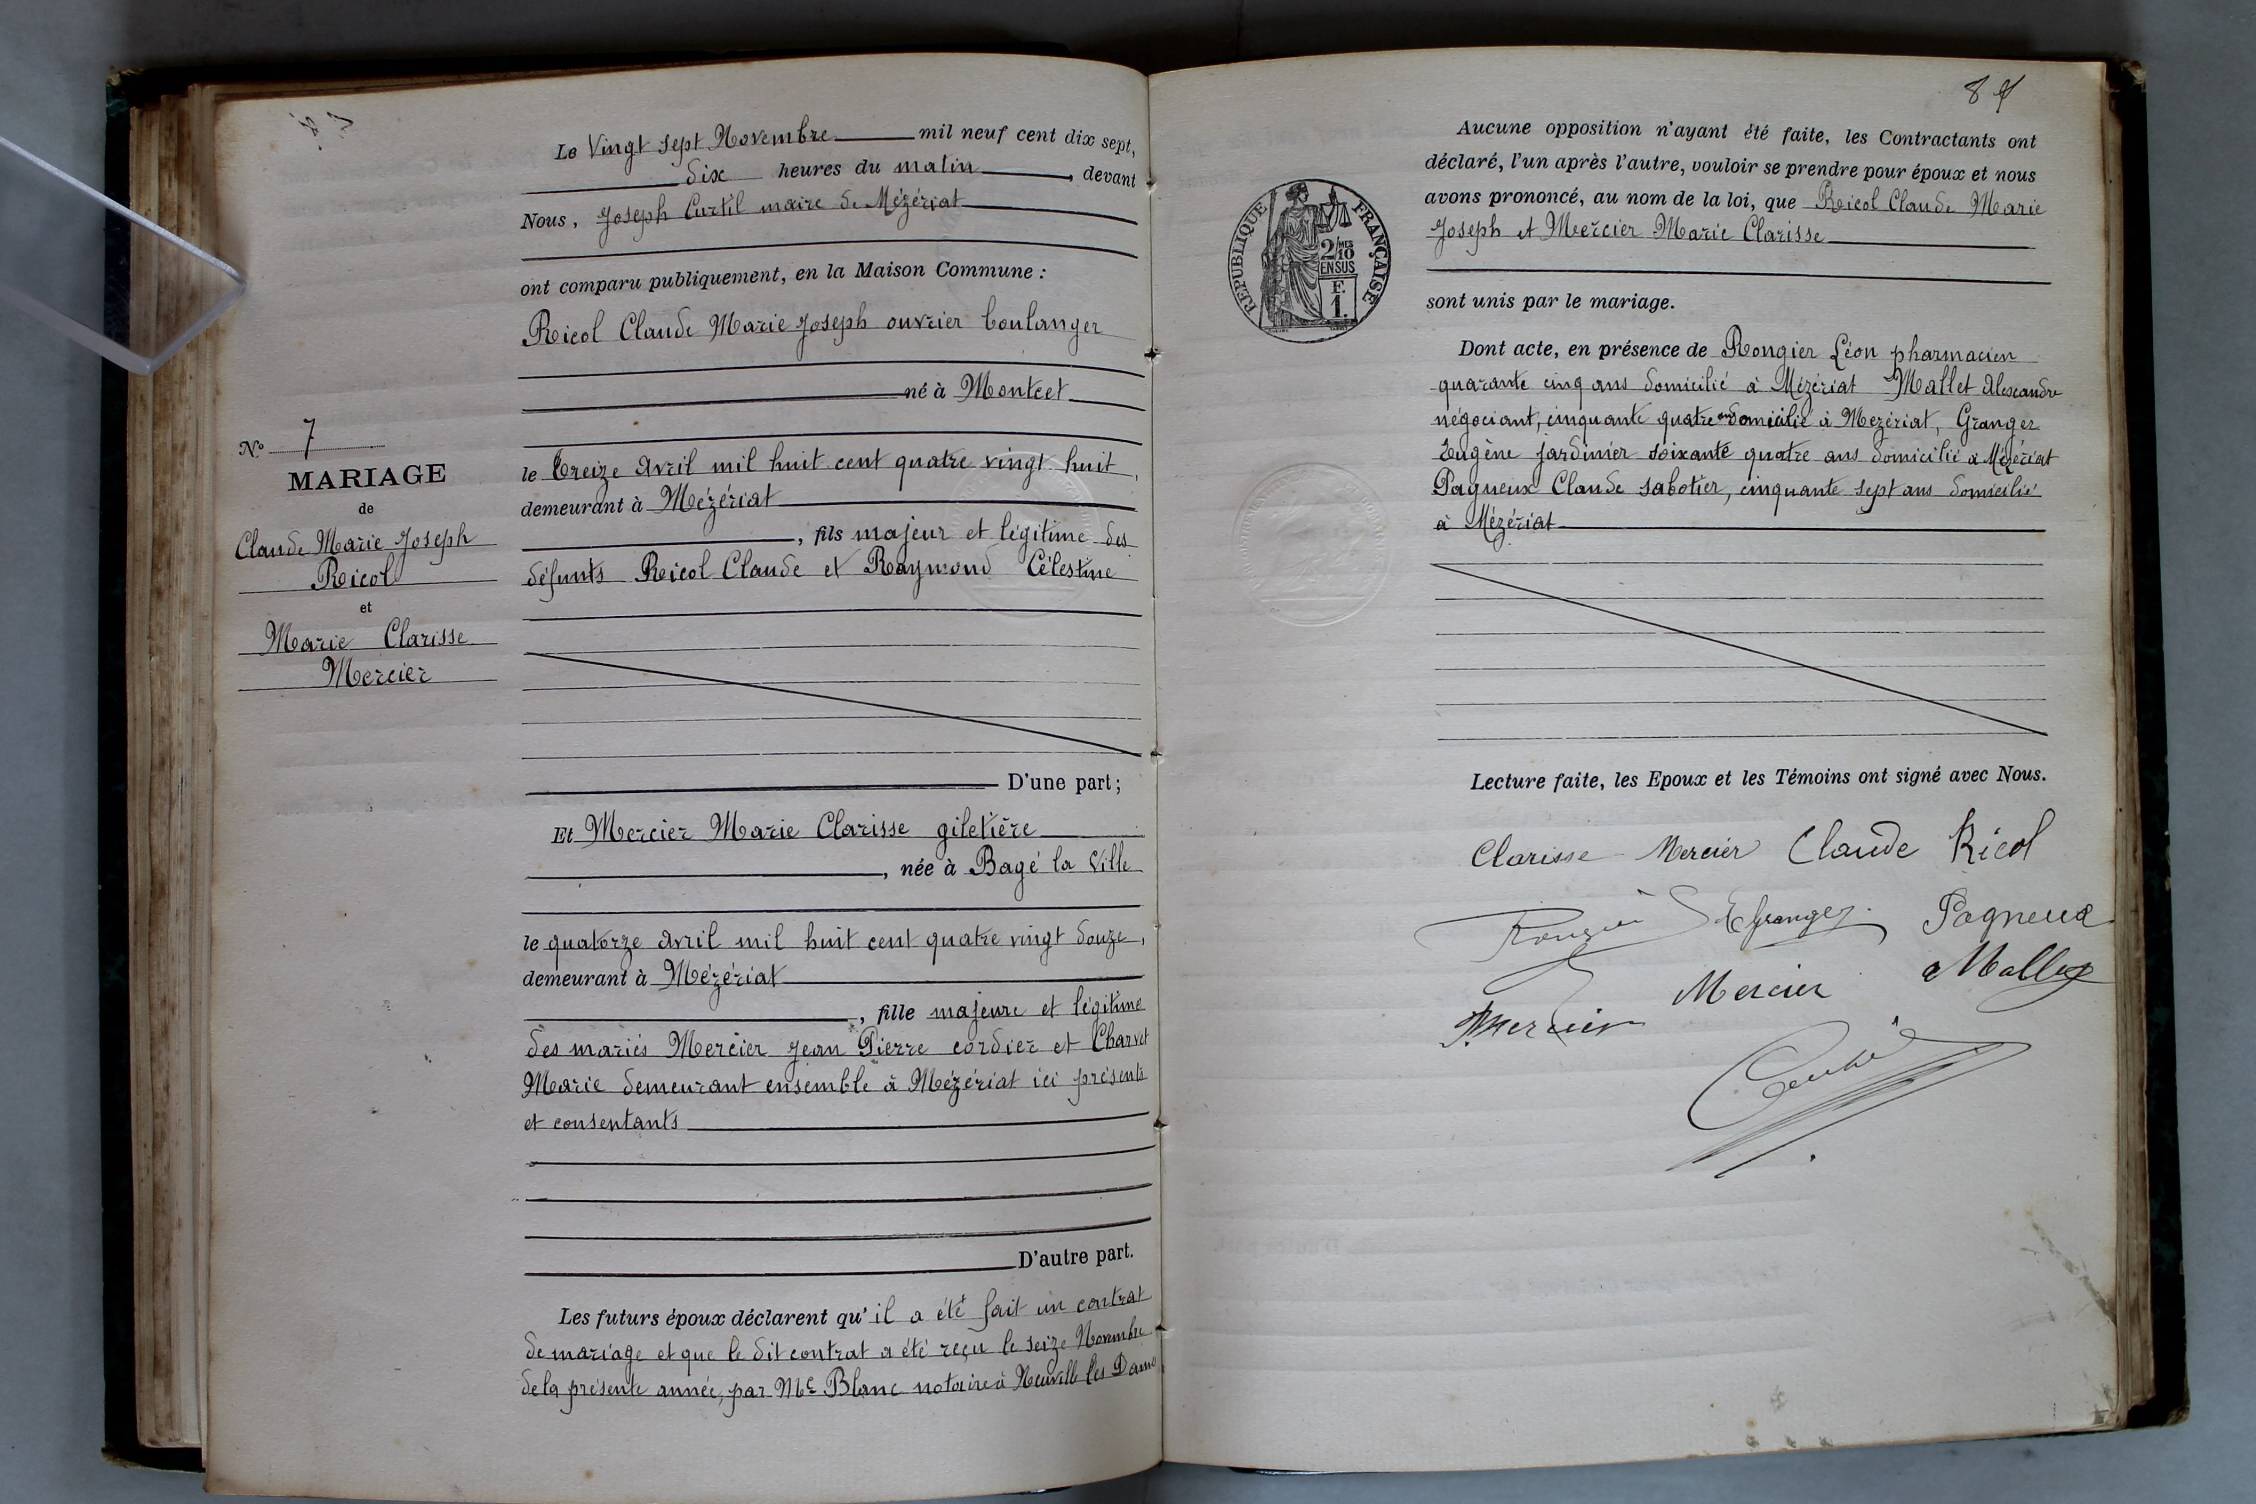 Le Vingt sept Novembre mil neuf cent dix sept,
dix heures du matin, devant
Nous, Joseph Curtil maire de Mézériat
ont comparu publiquement, en la Maison Commune :
Ricol Claude Marie Joseph ouvrier boulanger
né à Montcet
le treize Avril mil huit cent quatre vingt huit,
demeurant à Mézériat
, fils majeur et légitime des
défunts Ricol Claude et Raymond Célestine
D'une part;
Et Mercier Marie Clarisse giletière
, née à Bagé la Ville
le quatorze Avril mil huit cent quatre vingt douze,
demeurant à Mézériat
, fille majeure et légitime
des mariés Mercier Jean Pierre cordier et Charvet
Marie demeurant ensemble à Mézériat ici présents
et consentants
D'autre part.
Les futurs époux déclarent qu'il a été fait un contrat
de mariage et que le dit contrat a été reçu le seize Novembre
de la présente année, par Me Blanc notaire à Neuville les Dames
No 7
MARIAGE
de
Claude Marie Joseph
Ricol
et
Marie Clarisse
Mercier
84
Aucune opposition n'ayant été faite, les Contractants ont
déclaré, l'un après l'autre, vouloir se prendre pour époux et nous
avons prononcé, au nom de la loi, que Ricol Claude Marie
Joseph et Mercier Marie Clarisse
sont unis par le mariage.
RÉPUBLIQUE FRANÇAISE
2/10 MES
EN SUS
F.
1.
Dont acte, en présence de Rongier Léon pharmacien
quarante cinq ans domicilié à Mézériat Mallet Alexandre
négociant, cinquante quatre ans domicilié à Mezériat, Granger
Eugène jardinier soixante quatre ans domicilié à Mézériat
Pagneux Claude sabotier, cinquante sept ans domicilié
à Mézériat
Lecture faite, les Epoux et les Témoins ont signé avec Nous.
Clarisse Mercier Claude Ricol
Rongier E Granger Pagneux
Mercier Mallet
P. Mercier
Curtil